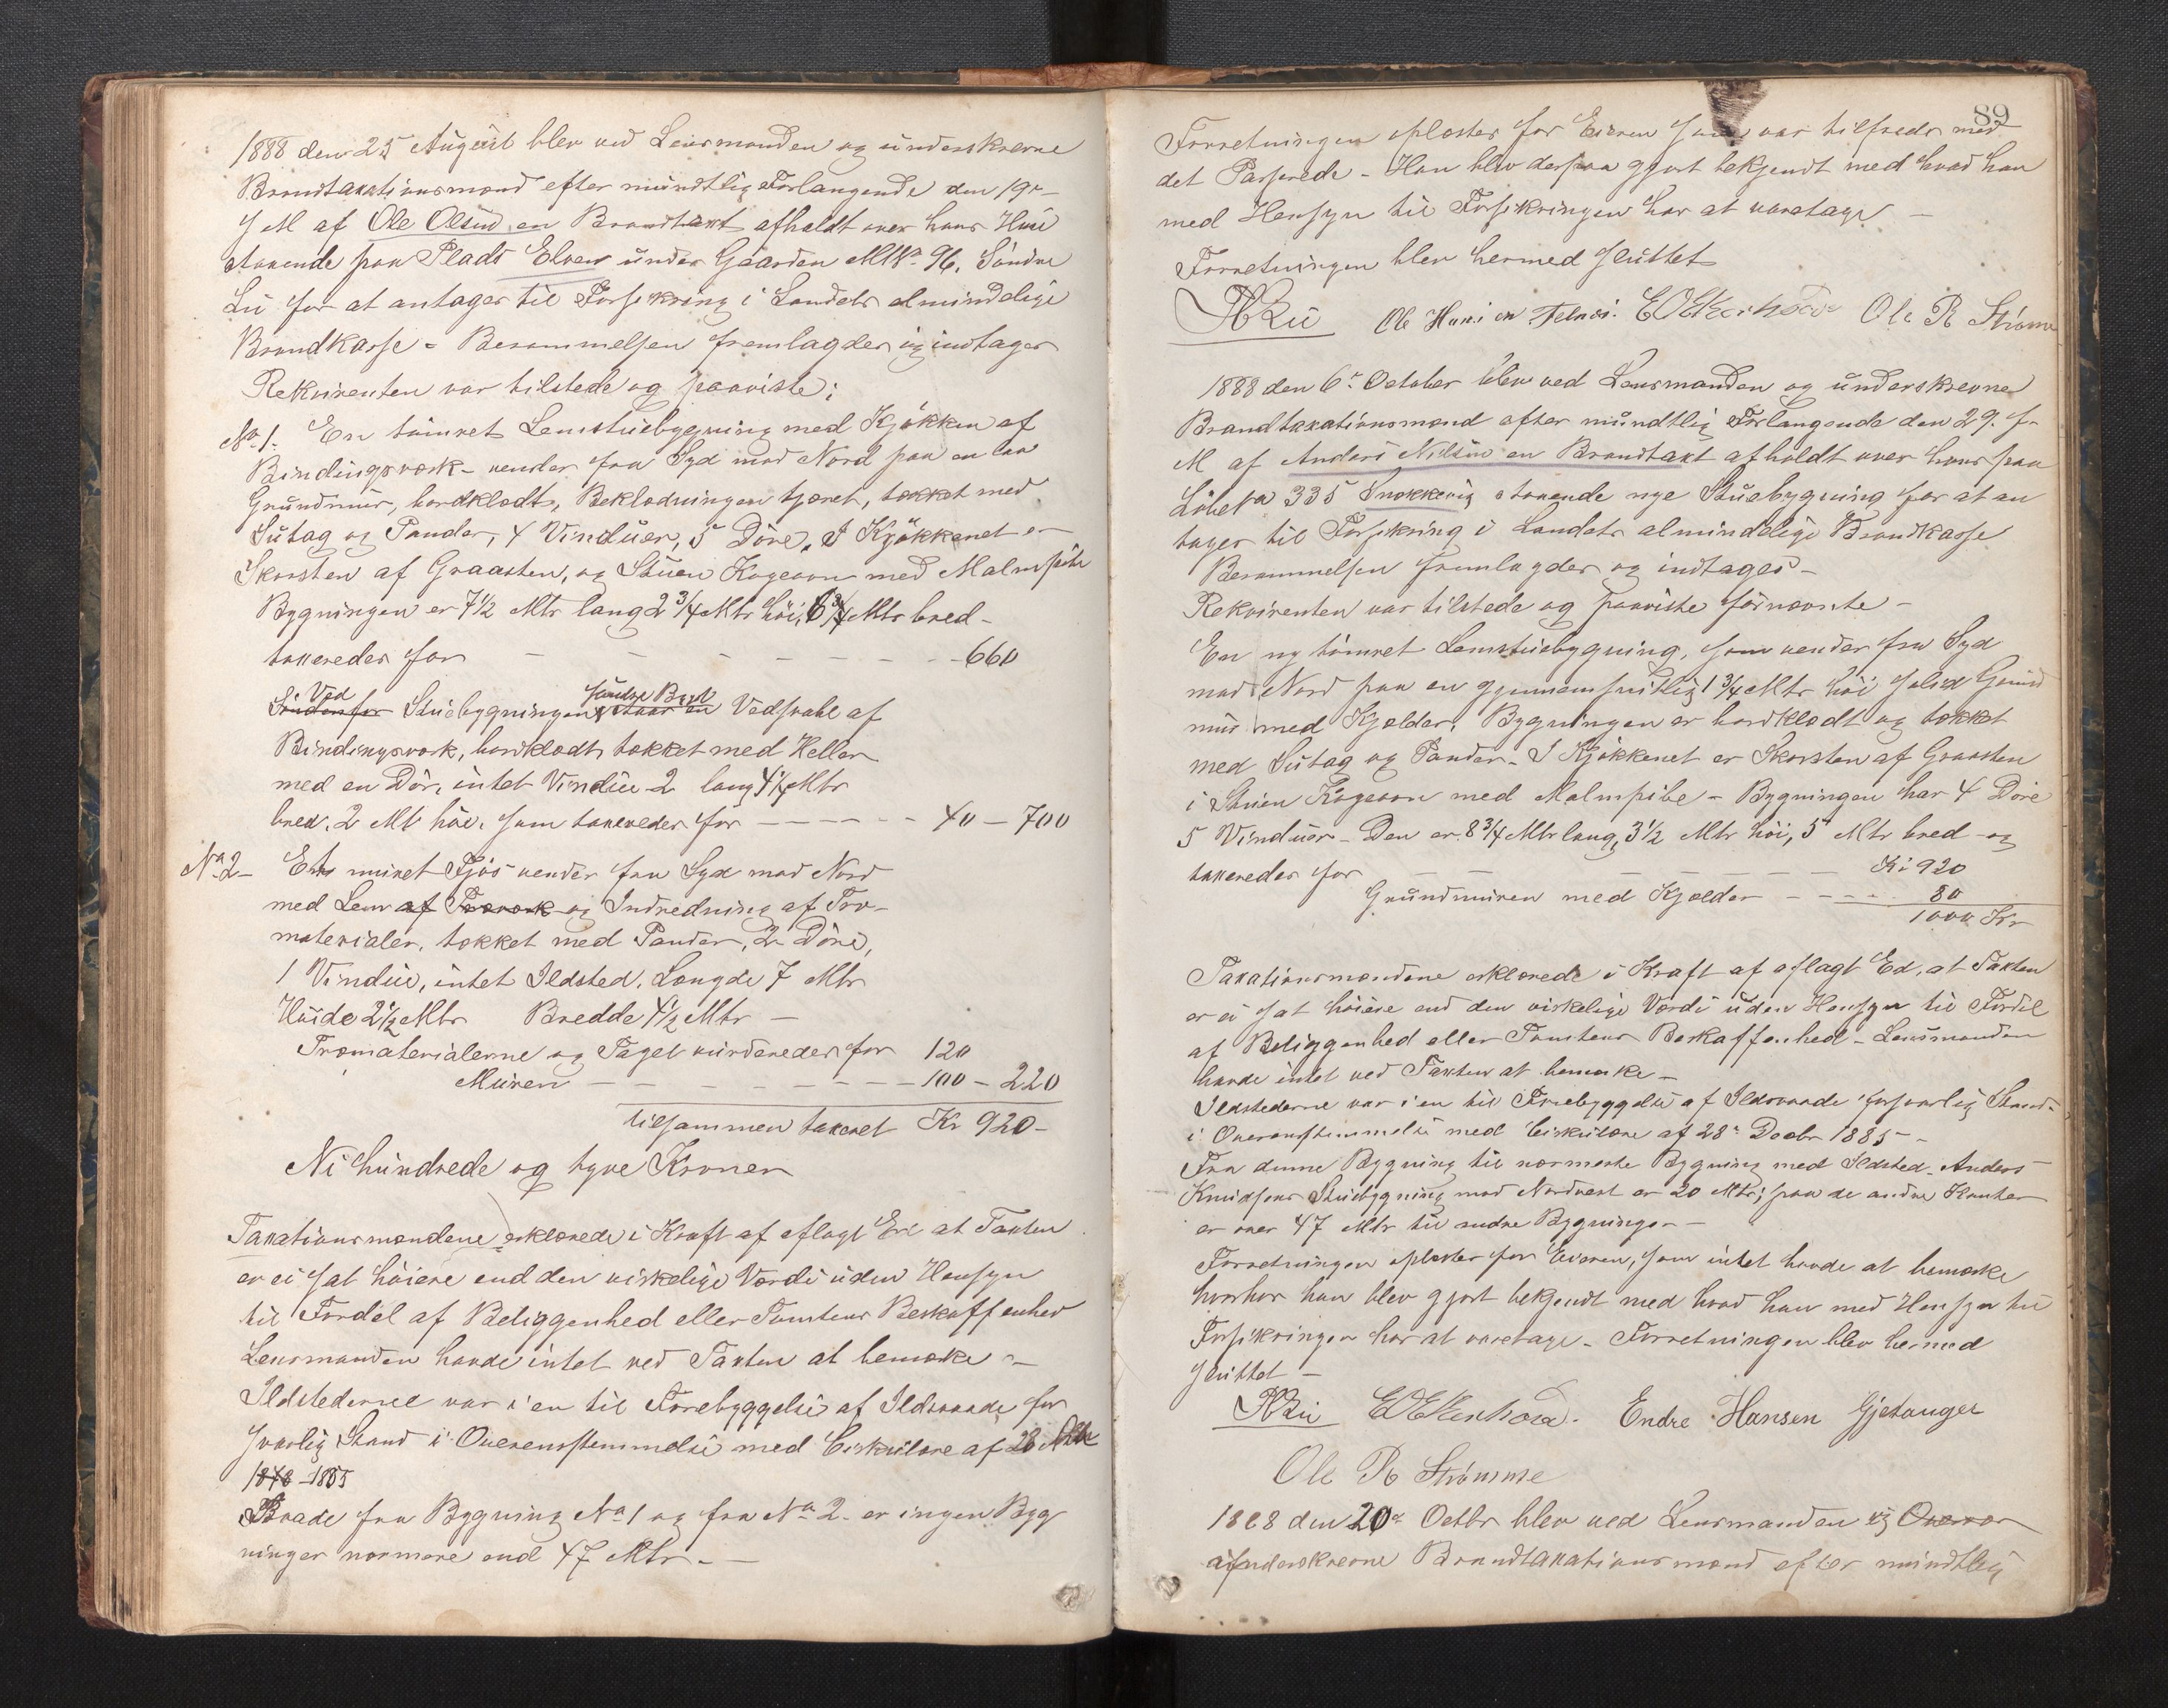 1888 den 25 August blev ved Lensmanden og underskrevne
Brandtaxationsmænd efter mundtlig Forlangende den 19de
s M af Ole Olsen en Brandtaxt afholdt over hans Huse
staaende paa Plads Elven under Gaarden MNo 96, Söndre
Lie for at antages til Forsikring i Landets almindelige
Brandkasse - Berammelsen fremlagdes og indtages
Rekvirenten var tilstede og paaviste:
No 1. En tömret Lemstuebygning med Kjökken af
Bindingsværk - vender fra Syd mod Nord paa en lav
Grundmuur, bordklædt, Beklædningen tjæret, tækket med
Sutag og Pander, 4 Vinduer, 5 Döre, I Kjökkenet er
Skorsten af Graasten, og Stuen Kogeovn med Malmpibe
Bygningen er 7 1/2 Mtr lang 2 3/4 Mtr höi, 6 3/4 Mtr bred -
taxeredes for - - - - - - - 660
Ved söndre Bort
Söndenfor Stuebygningens staar en Vedsvale af
Bindingsværk, bordklædt tækket med Heller
med en Dör, intet Vindue 2 lang 4 1/2 Mtr
bred, 2 Mtr höi, som taxeredes for - - - - - - 40 - 700
No 2 - Et muret Fjös vender fra Syd mod Nord
med Lem af Træværk og Indredning af Træ-
materialer, tækket med Pander, 2 Döre,
1 Vindue, intet Ildsted, Længde 7 Mtr
Höide 2 1/2 Mtr Bredde 4 1/2 Mtr -
Træmaterialerne og Taget vurderedes for 120
Muren - - - - - - - - 100 - 220
tilsammen taxeret Kr 920 -
Ni hundrede og tyve Kroner
Taxationsmændene erklærede i Kraft af aflagt Ed at Taxten
er ei sat höiere end den virkelige Værdi uden Hensyn
til Fordel af Beliggenhed eller Tomtens Beskaffenhed
Lensmanden havde intet ved Taxten at bemærke -
Ildstederne var i en til Forebyggelse af Ildsvaade for
svarlig Stand i Overensstemmelse med Cirkulære af 28
1878 - 1885
Baade fra Bygning No 1 og fra No 2 - er ingen Byg
ninger nærmere end 47 Mtr. -
89
Forretningen oplæstes for Eieren som var tilfreds med
det Passerede - Han blev derpaa gjort bekjendt med hvad han
med Hensyn til Forsikringen har at varetage -
Forretningen blev hermed sluttet
Ole Ole R Strömme
1888 den 6te October blev ved Lensmanden og underskrevne
Brandtaxationsmænd efter mundtlig Forlangende den 29. f.
M af Anders Nilsen en Brandtaxt afholdt over hans paa
LöbeNo 335 Snekkevig staaende nye Stuebygning for at an
tages til Forsikring i Landets almindelige Brandkasse
Berammelsen fremlagdes og indtages -
Rekvirenten var tilstede og paaviste förnævnte -
En ny tömret Lemstuebygning, som vender fra Syd
mod Nord paa en gjennemsnitlig 1 3/4 Mtr höi solid Grund
mur med Kjælder. Bygningen er bordklædt og tækket
med Sutag og Pander - I Kjökkenet er Skorsten af Graasten
i Stuen Kogeovn med Malmpibe - Bygningen har 4 Döre
5 Vinduer - Den er 8 3/4 Mtr lang, 3 1/2 Mtr höi, 5 Mtr bred - og
taxeredes for - - - - - - Kr 920
Grundmuren med Kjælder - - - - 80
1000 Kr
Taxationsmændene erklærede i Kraft af aflagt Ed, at Taxten
er ei sat höiere end den virkelige Værdi uden Hensyn til Fordel
af Beliggenhed eller Tomtens Beskaffenhed - Lensmanden
havde intet ved Taxten at bemærke -
Ildstederne var i en til Forebyggelse af Ildsvaade forsvarlig Stand
i Overensstemmelse med Cirkulære af 28de Decbr 1885 -
Fra denne Bygning til nærmeste Bygning med Ildsted - Anders
Knudsens Stuebygning mod Nordvest er 20 Mtr; paa de andre Kanter
er over 47 Mtr til andre Bygninger -
Forretningen oplæstes for Eieren, som intet havde at bemærke
hvorhos han blev gjort bekjendt med hvad han med Hensyn til
Forsikringen har at varetage - Forretningen blev hermed
sluttet -
Endre Hansen Gjetanger
Ole R Strömme
1888 den 20de Octbr blev ved Lensmanden og Overvær
af underskrevne Brandtaxationsmænd efter mundtlig